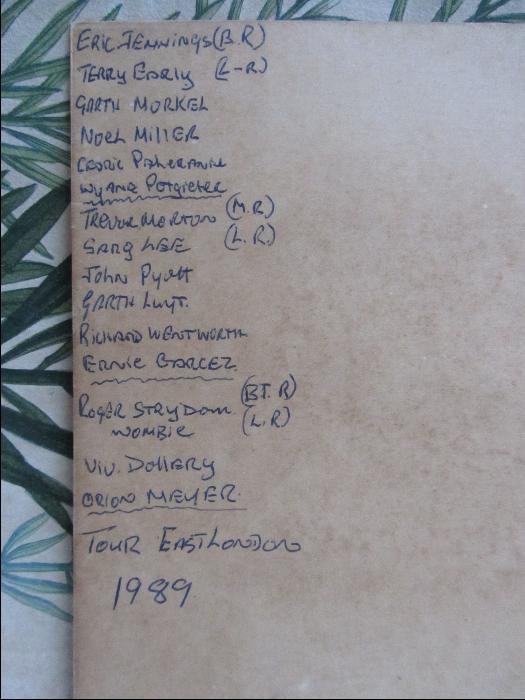 ERIC JENNINGS (B.R)
TERRY EARLY (L-R)
GARTH MORKEL
NOEL MILLER
CEDRIC
WYAND POTGIETER
TREVOR MORTON (M.R)
SARG LEE (L.R.)
JOHN PYOTT
GARTH LUYT.
RICHARD WENTWORTH
ERNIE BARCEZ.
ROGER STRYDOM. (BT.R)
WOMBIE (L.R)
VIV. DOLLERY
ORION MEYER.
TOUR EAST LONDON
1989